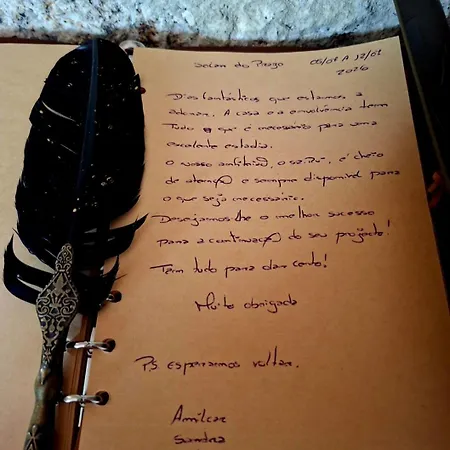 Solar do Prazo 05/01 A 12/01
2026
Dias fantásticos que estamos a
adorar. A casa e a envolvência tem
tudo o que é necessário para uma
excelente estadia.
O nosso anfitrião, o, é cheio
de atenção e sempre disponível para
o que seja necessário.
Desejamos-lhe o melhor sucesso
para a continuação do seu projecto!
Tem tudo para dar certo!
Muito obrigada
PS esperamos voltar.
Amílcar
Sandra